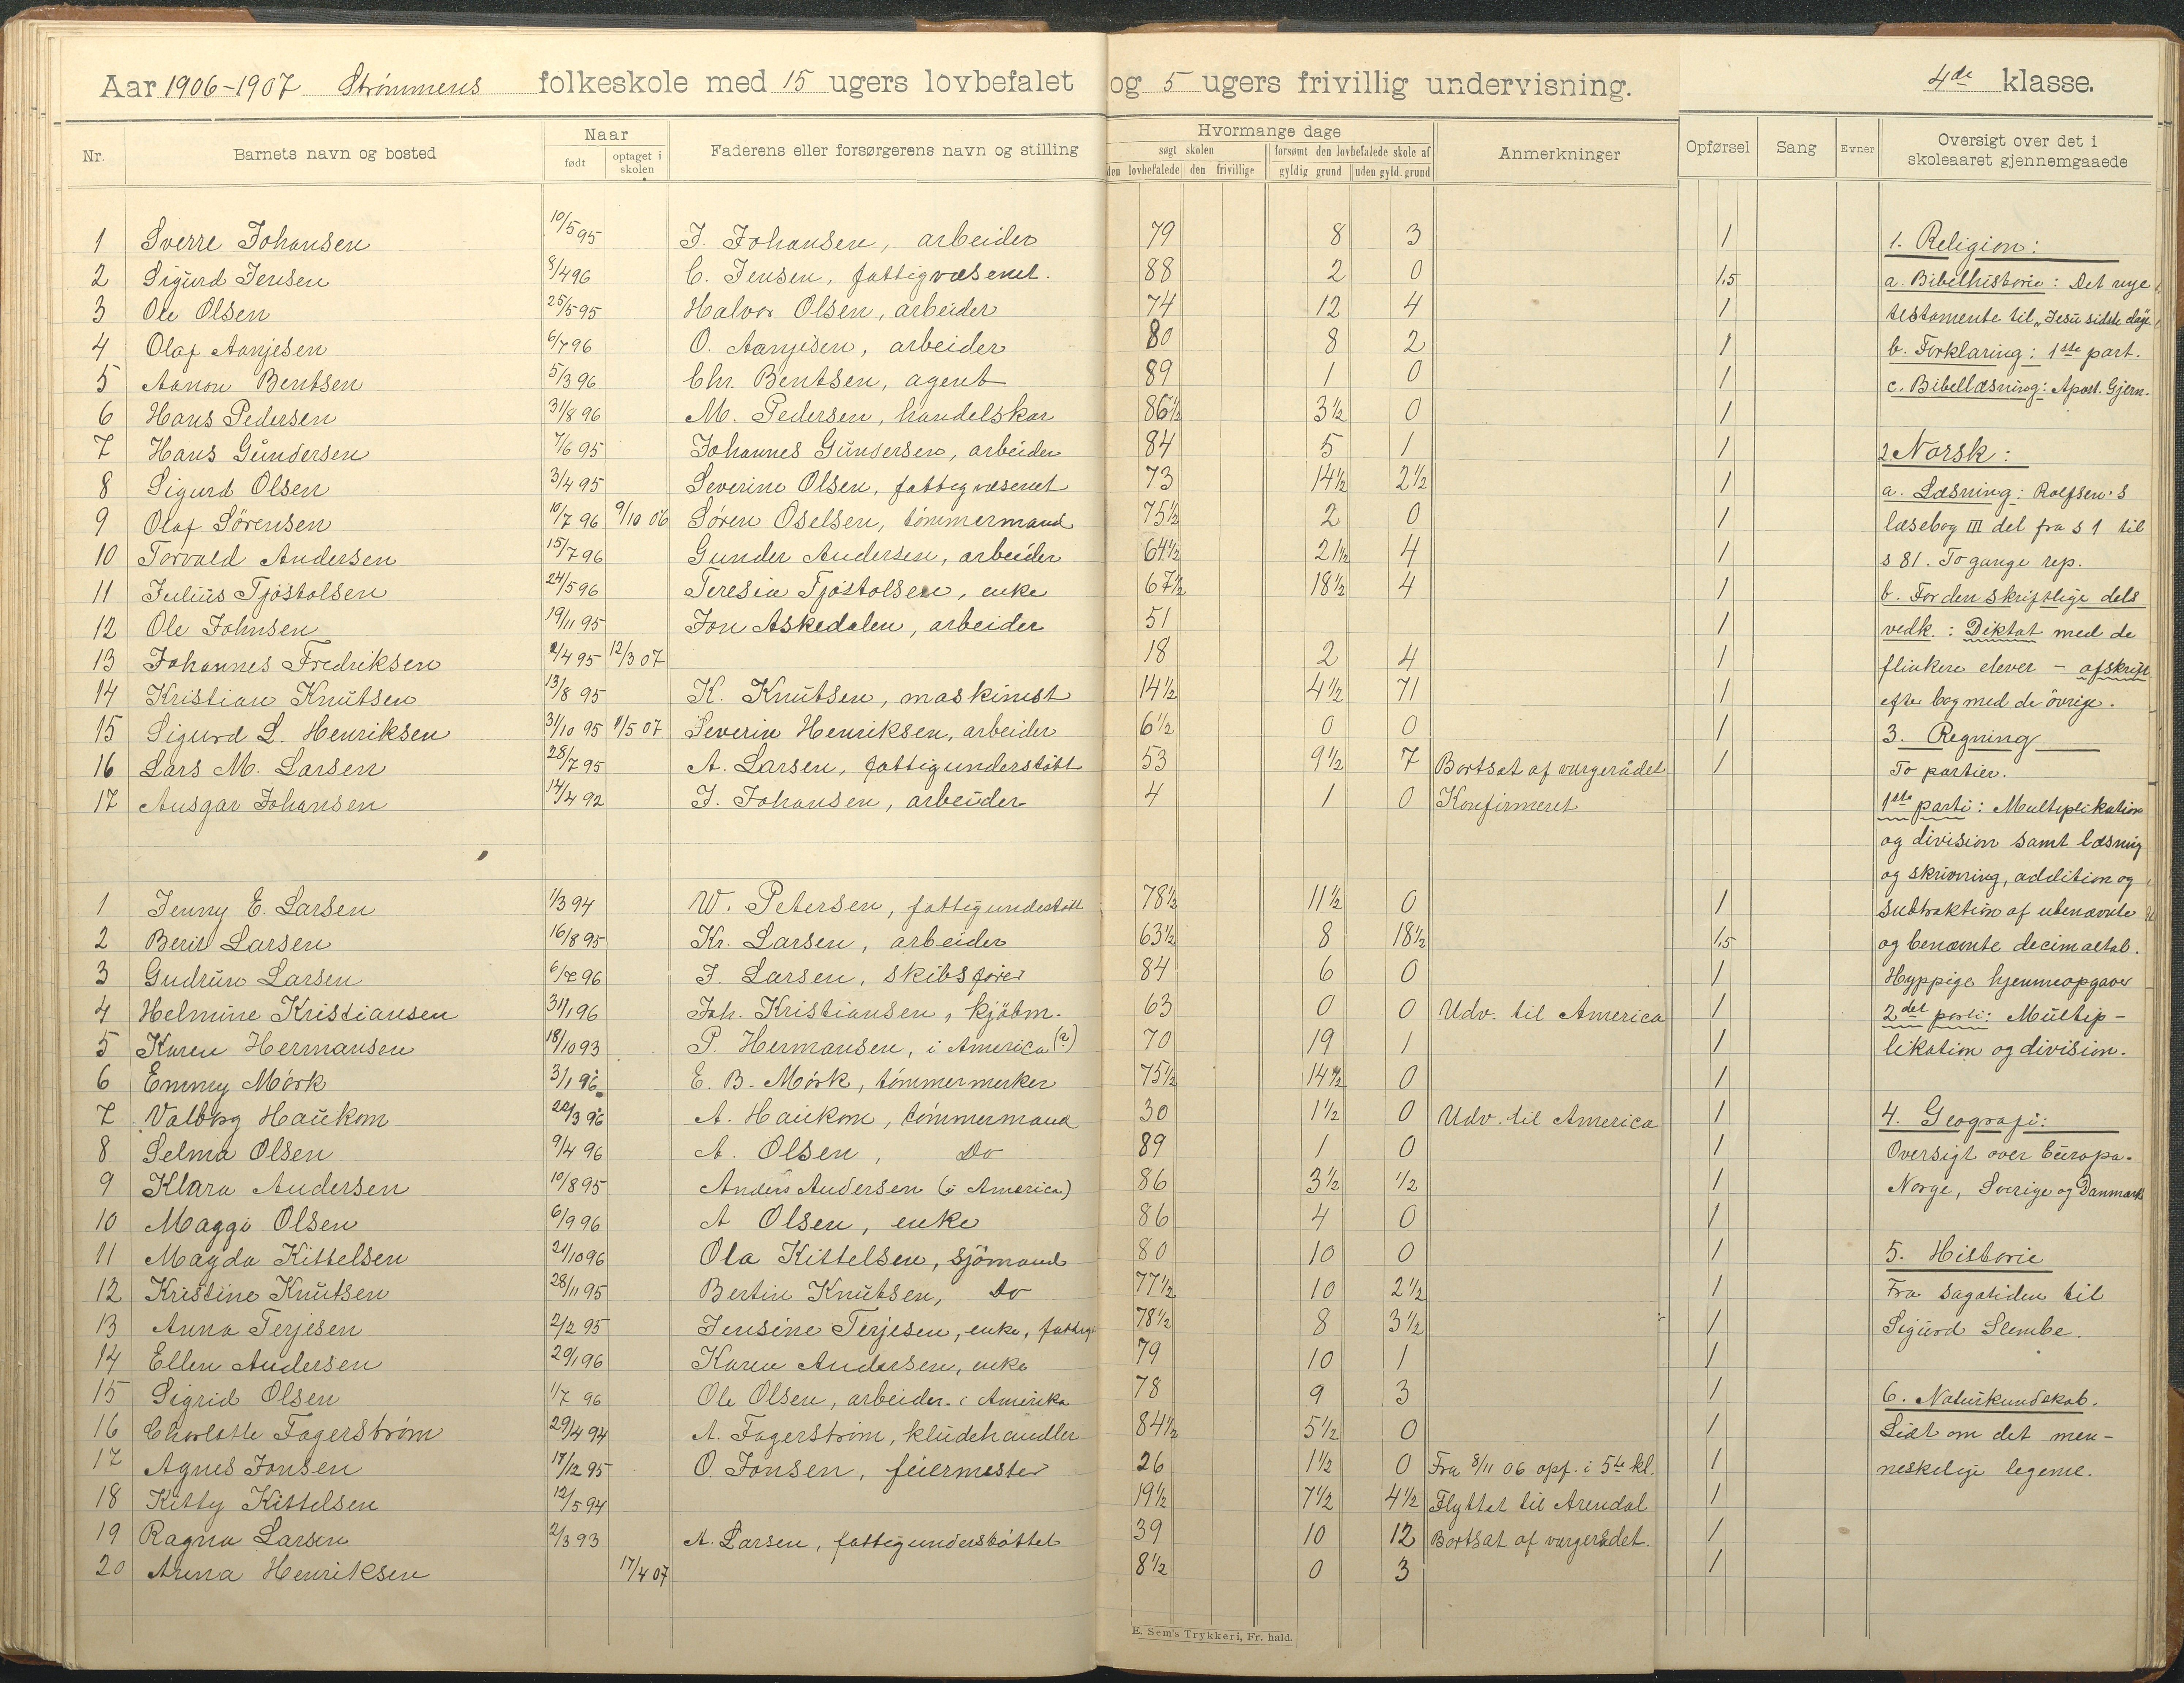 Aar 1906-1907 Strømmens folkeskole med 15 ugers lovbefalet og 5 ugers frivillig undervisning. 4de klasse.
Nr. Barnets navn og bosted Naar født optaget i skolen Faderens eller forsørgerens navn og stilling Hvormange dage søgt skolen den lovbefalede den frivillige forsømt den lovbefalede skole af gyldig grund uden gyld. grund Anmerkninger Opførsel Sang Evner Oversigt over det i skoleaaret gjennemgaaede
1 Sverre Johansen 10/5 95 J. Johansen, arbeider 79 8 3 1
2 Sigurd Jensen 8/4 96 C. Jensen, fattigvæsenet. 88 2 0 1,5
3 Ole Olsen 25/5 95 Halvor Olsen, arbeider 74 12 4 1
4 Olaf Aanjesen 6/7 96 O. Aanjesen, arbeider 80 8 2 1
5 Aanon Bentsen 5/3 96 Chr. Bentsen, agent 89 1 0 1
6 Hans Pedersen 31/8 96 M. Pedersen, handelskar 86 1/2 3 1/2 0 1
7 Hans Gundersen 7/6 95 Johannes Gundersen, arbeider 84 5 1 1
8 Sigurd Olsen 3/4 95 Severine Olsen, fattigvæsenet 73 14 1/2 2 1/2 1
9 Olaf Sörensen 10/7 96 9/10 06 Søren Oselsen, tömmermand 75 1/2 2 0 1
10 Torvald Andersen 15/7 96 Gunder Andersen, arbeider 64 1/2 21 1/2 4 1
11 Julius Tjöstolsen 24/5 96 Teresia Tjöstolsen, enke 67 1/2 18 1/2 4 1
12 Ole Johnsen 19/11 95 Jon Askedalen, arbeider 51 1
13 Johannes Fredriksen /4 95 12/3 07 18 2 4 1
14 Kristian Knutsen 13/8 95 K. Knutsen, maskinist 14 1/2 4 1/2 71 1
15 Sigurd L. Henriksen 31/10 95 1/5 07 Severin Henriksen, arbeider 6 1/2 0 0 1
16 Lars M. Larsen 28/7 95 A. Larsen, fattigunderstött 53 9 1/2 7 Bortsat af vergerådet 1
17 Ansgar Johansen 14/4 92 J. Johansen, arbeider 4 1 0 Konfirmeret
1 Jenny E. Larsen 1/3 94 W. Petersen, fattigunderstött 78 1/2 11 1/2 0 1
2 Berit Larsen 16/8 95 Kr. Larsen, arbeider 63 1/2 8 18 1/2 1,5
3 Gudrun Larsen 6/7 96 J. Larsen, skibsfører 84 6 0 1
4 Helmine Kristiansen 31/1 96 Joh. Kristiansen, kjöbm. 63 0 0 Udv. til America 1
5 Karen Hermansen 18/10 93 P. Hermansen, i America (?) 70 19 1 1
6 Emmy Mörk 3/1 96 E. B. Mörk, tömmermerker 75 1/2 14 1/2 0 1
7 Valborg Haukom 20/3 96 A. Haukom, tömmermand 30 1 1/2 0 Udv. til America 1
8 Selma Olsen 9/4 96 A. Olsen, do 89 1 0 1
9 Klara Andersen 10/8 95 Anders Andersen (i America) 86 3 1/2 1/2 1
10 Maggi Olsen 6/9 96 A Olsen, enke 86 4 0 1
11 Magda Kittelsen 21/10 96 Ola Kittelsen, sjömand 80 10 0 1
12 Kristine Knutsen 28/11 95 Bertin Knutsen, do 77 1/2 10 2 1/2 1
13 Anna Terjesen 2/2 95 Jensine Terjesen, enke, fattig 78 1/2 8 3 1/2 1
14 Ellen Andersen 29/1 96 Karen Andersen, enke 79 10 1 1
15 Sigrid Olsen 1/7 96 Ole Olsen, arbeider. i Amerika 78 9 3 1
16 Charlotte Fagerström 29/4 94 A. Fagerström, kludehandler 84 1/2 5 1/2 0 1
17 Agnes Jonsen 17/12 95 O. Jonsen, feiermester 26 1 1/2 0 Fra 8/11 06 opf. i 5te kl. 1
18 Kitty Kittelsen 12/5 94 19 1/2 7 1/2 4 1/2 Flyttet til Arendal 1
19 Ragna Larsen 2/3 93 A. Larsen, fattigunderstöttet 39 10 12 Bortsat af vergerådet. 1
20 Anna Henriksen 17/4 07 8 1/2 0 3 1
1. Religion:
a. Bibelhistorie: Det nye
testamente til "Jesu sidste dage.
b. Forklaring: 1ste part.
c. Bibellæsning: Apost. Gjern.
2 Norsk:
a. Læsning: Rolfsen's
læsebog III del fra s 1 til
s 81. To gange rep.
b. For den skriftlige dels
vedk.: Diktat med de
flinkere elever - afskrift
efter bog med de övrige.
3. Regning
To partier.
1ste parti: Multiplikation
og division samt læsning
og skrivning, addition og
subtraktion af ubenævnte
og benævnte decimaltal.
Hyppige hjemmeopgaver
2det parti: Multip-
likation og division.
4. Geografi:
Oversigt over Europa.
Norge, Sverige og Danmark
5. Historie
Fra sagatiden til
Sigurd Slembe.
6. Naturkundskab.
Lidt om det men-
neskelige legeme.
E. Sem's Trykkeri, Fr. hald.